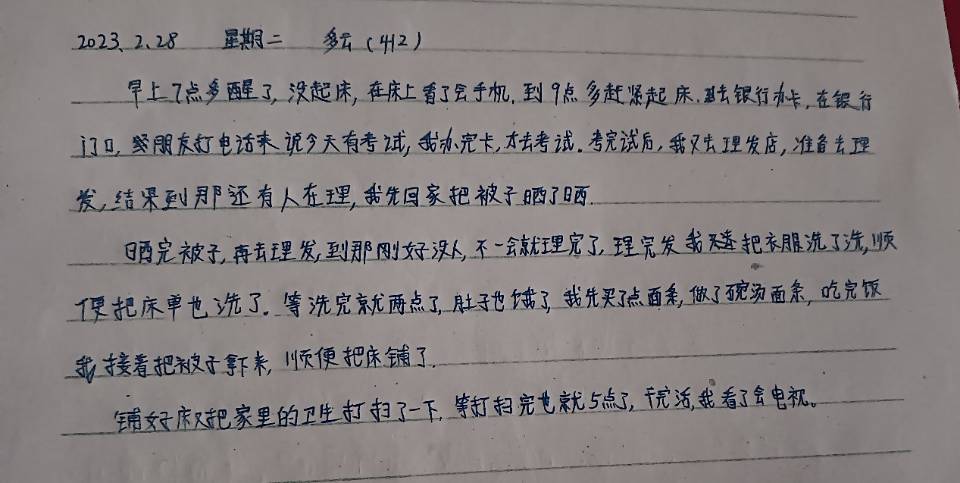 2023.2.28 星期二 多云(412)
早上7点多醒了,没起床,在床上看了会手机,到9点多赶紧起床.去银行办卡,在银行
门口,朋友打电话来说今天有考试,我办完卡,才去考试.考完试后,我又去理发店,准备去理
发,结果到那还有人在理,我先回家把被子晒了晒.
晒完被子,再去理发,到那刚好没人,不一会就理完了,理完发我把衣服洗了洗,顺
便把床单也洗了.等洗完就两点了,肚子也饿了,我先买了点面条,做了碗汤面条,吃完饭
我接着把被子拿下来,顺便把床铺了.
铺好床又把家里的卫生打扫了一下,等打扫完也就5点了,干完活,我看了会电视。